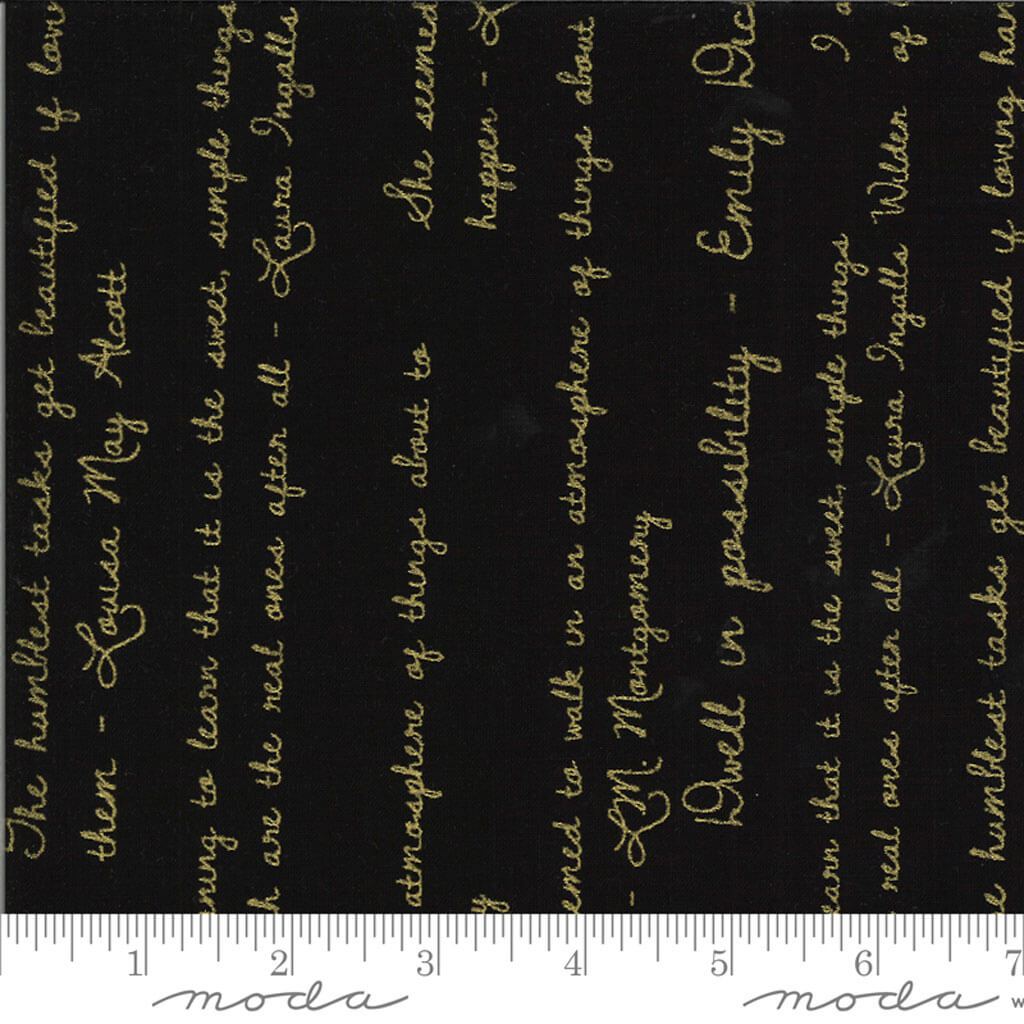 The humblest tasks get beautified if
them - Louisa May Alcott
to learn that it is the sweet, simple things
are the real ones after all - Laura Ingalls
atmosphere of things about to
She seemed
happen -
to walk in an atmosphere of things about
- L.M. Montgomery
Dwell in possibility - Emily
that it is the sweet, simple things
I
real ones after all - Laura Ingalls Wilder
of
humblest tasks get beautified if loving
1 2 3 4 5 6 7
moda moda